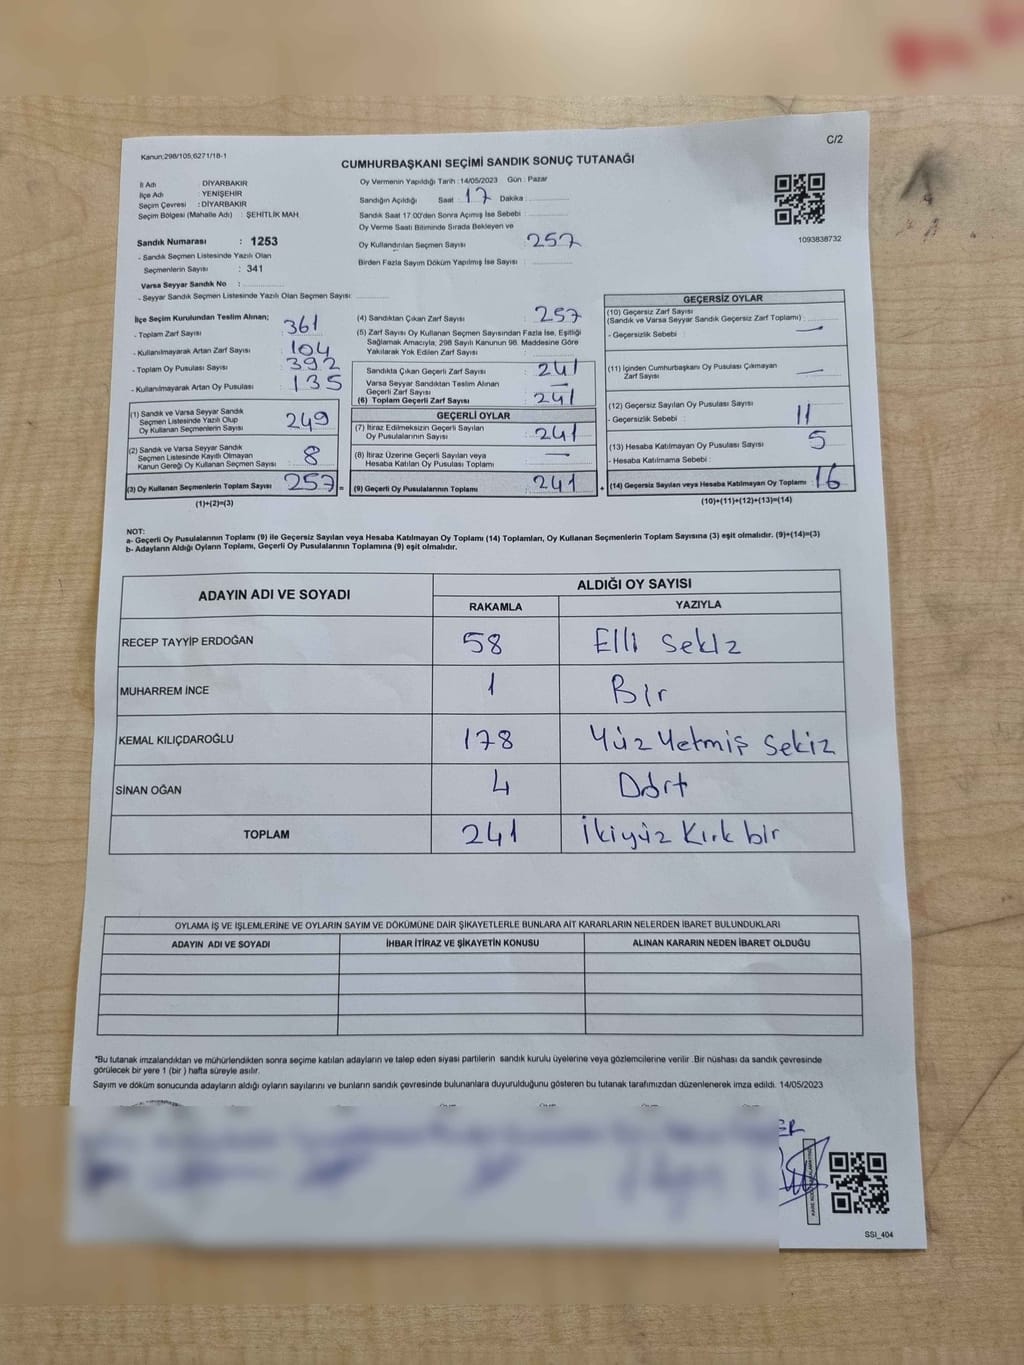 C/2
Kanun;298/105;6271/18-1
CUMHURBAŞKANI SEÇİMİ SANDIK SONUÇ TUTANAĞI
İl Adı : DİYARBAKIR
İlçe Adı : YENİŞEHİR
Seçim Çevresi : DİYARBAKIR
Seçim Bölgesi (Mahalle Adı) : ŞEHİTLİK MAH
Sandık Numarası : 1253
- Sandık Seçmen Listesinde Yazılı Olan
Seçmenlerin Sayısı : 341
Varsa Seyyar Sandık No :
- Seyyar Sandık Seçmen Listesinde Yazılı Olan Seçmen Sayısı:
Oy Vermenin Yapıldığı Tarih : 14/05/2023 Gün : Pazar
Sandığın Açıldığı Saat : 17 Dakika
Sandık Saat 17.00'den Sonra Açımış İse Sebebi :
Oy Verme Saati Bitiminde Sırada Bekleyen ve
Oy Kullandırılan Seçmen Sayısı : 257
Birden Fazla Sayım Döküm Yapılmış İse Sayısı :
1093838732
İlçe Seçim Kurulundan Teslim Alınan;
- Toplam Zarf Sayısı 361
- Kullanılmayarak Artan Zarf Sayısı 104
- Toplam Oy Pusulası Sayısı 392
- Kullanılmayarak Artan Oy Pusulası 135
(1) Sandık ve Varsa Seyyar Sandık
Seçmen Listesinde Yazılı Olup
Oy Kullanan Seçmenlerin Sayısı 249
(2) Sandık ve Varsa Seyyar Sandık
Seçmen Listesinde Kayıtlı Olmayan
Kanun Gereği Oy Kullanan Seçmen Sayısı 8
(3) Oy Kullanan Seçmenlerin Toplam Sayısı 257 =
(1)+(2)=(3)
(4) Sandıktan Çıkan Zarf Sayısı : 257
(5) Zarf Sayısı Oy Kullanan Seçmen Sayısından Fazla İse, Eşitliği
Sağlamak Amacıyla; 298 Sayılı Kanunun 98. Maddesine Göre
Yakılarak Yok Edilen Zarf Sayısı :
Sandıkta Çıkan Geçerli Zarf Sayısı : 241
Varsa Seyyar Sandıktan Teslim Alınan
Geçerli Zarf Sayısı : —
(6) Toplam Geçerli Zarf Sayısı : 241
GEÇERLİ OYLAR
(7) İtiraz Edilmeksizin Geçerli Sayılan
Oy Pusulalarının Sayısı : 241
(8) İtiraz Üzerine Geçerli Sayılan veya
Hesaba Katılan Oy Pusulası Toplamı : —
(9) Geçerli Oy Pusulalarının Toplamı : 241 +
GEÇERSİZ OYLAR
(10) Geçersiz Zarf Sayısı
(Sandık ve Varsa Seyyar Sandık Geçersiz Zarf Toplamı) :
- Geçersizlik Sebebi : —
(11) İçinden Cumhurbaşkanı Oy Pusulası Çıkmayan
Zarf Sayısı : —
(12) Geçersiz Sayılan Oy Pusulası Sayısı
- Geçersizlik Sebebi : 11
(13) Hesaba Katılmayan Oy Pusulası Sayısı : 5
- Hesaba Katılmama Sebebi :
(14) Geçersiz Sayılan veya Hesaba Katılmayan Oy Toplamı : 16
(10)+(11)+(12)+(13)=(14)
NOT:
a- Geçerli Oy Pusulalarının Toplamı (9) ile Geçersiz Sayılan veya Hesaba Katılmayan Oy Toplamı (14) Toplamları, Oy Kullanan Seçmenlerin Toplam Sayısına (3) eşit olmalıdır. (9)+(14)=(3)
b- Adayların Aldığı Oyların Toplamı, Geçerli Oy Pusulalarının Toplamına (9) eşit olmalıdır.
ADAYIN ADI VE SOYADI ALDIĞI OY SAYISI
RAKAMLA YAZIYLA
RECEP TAYYİP ERDOĞAN 58 Elli sekiz
MUHARREM İNCE 1 Bir
KEMAL KILIÇDAROĞLU 178 Yüz Yetmiş sekiz
SİNAN OĞAN 4 Dört
TOPLAM 241 İkiyüz Kırk bir
OYLAMA İŞ VE İŞLEMLERİNE VE OYLARIN SAYIM VE DÖKÜMÜNE DAİR ŞİKAYETLERLE BUNLARA AİT KARARLARIN NELERDEN İBARET BULUNDUKLARI
ADAYIN ADI VE SOYADI İHBAR İTİRAZ VE ŞİKAYETİN KONUSU ALINAN KARARIN NEDEN İBARET OLDUĞU
*Bu tutanak imzalandıktan ve mühürlendikten sonra seçime katılan adayların ve talep eden siyasi partilerin sandık kurulu üyelerine veya gözlemcilerine verilir .Bir nüshası da sandık çevresinde
görülecek bir yere 1 (bir ) hafta süreyle asılır.
Sayım ve döküm sonucunda adayların aldığı oyların sayılarını ve bunların sandık çevresinde bulunanlara duyurulduğunu gösteren bu tutanak tarafımızdan düzenlenerek imza edildi. 14/05/2023
SSI_404